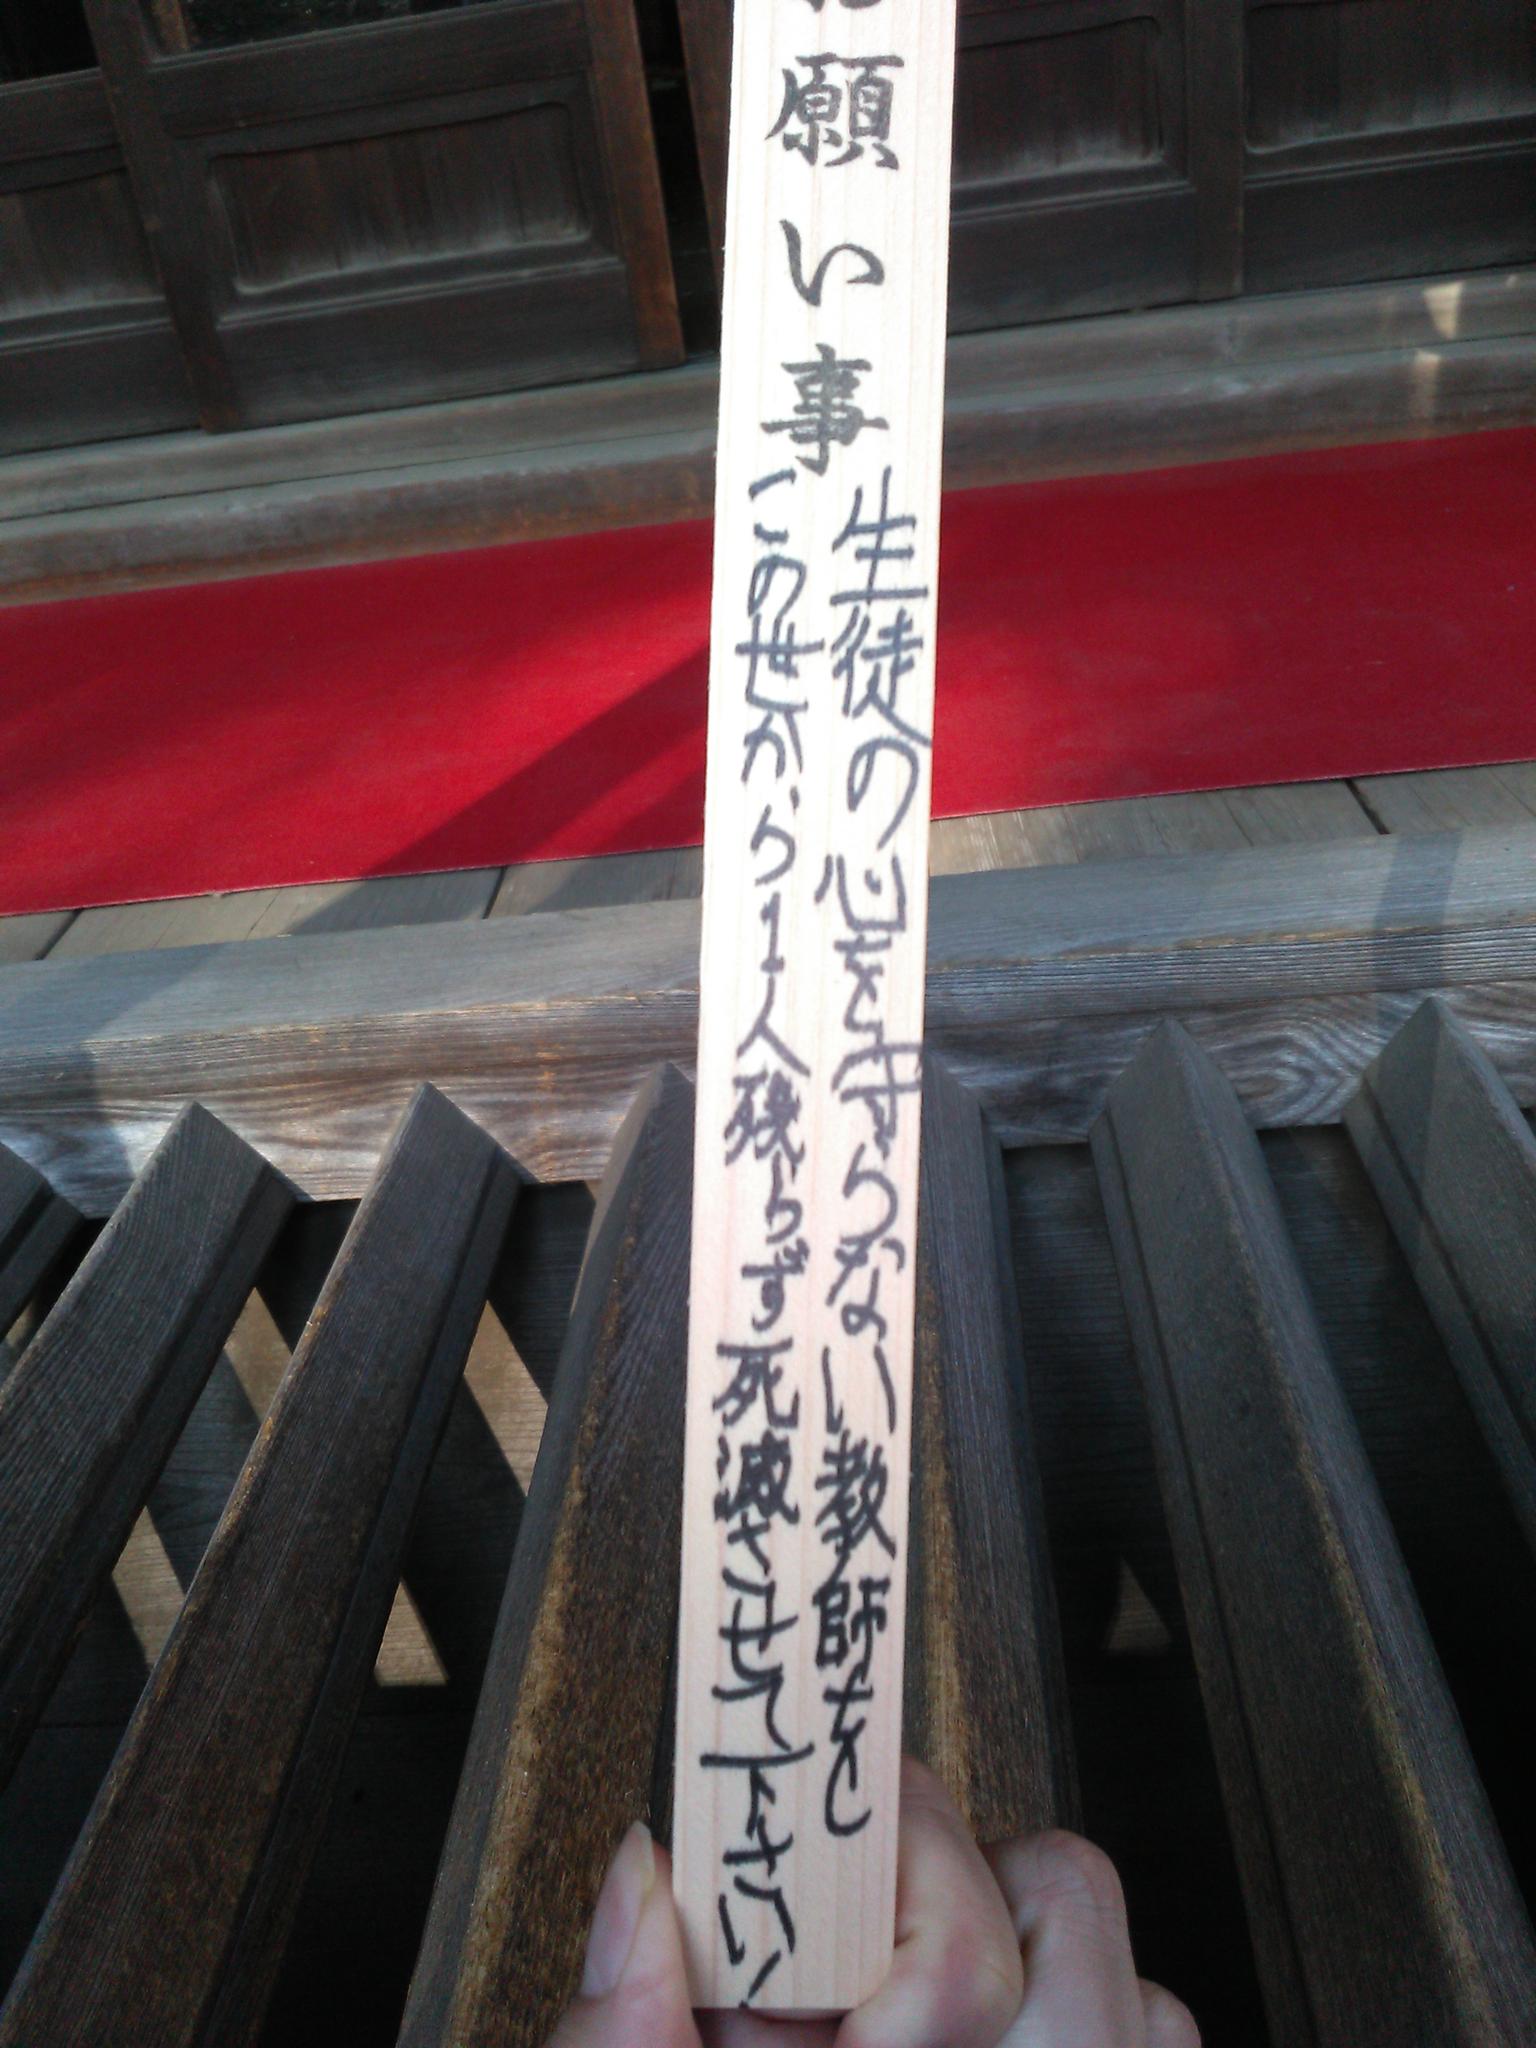 お願い事
生徒の心をすらない教師を
この世から1人残らず死滅させて下さい!